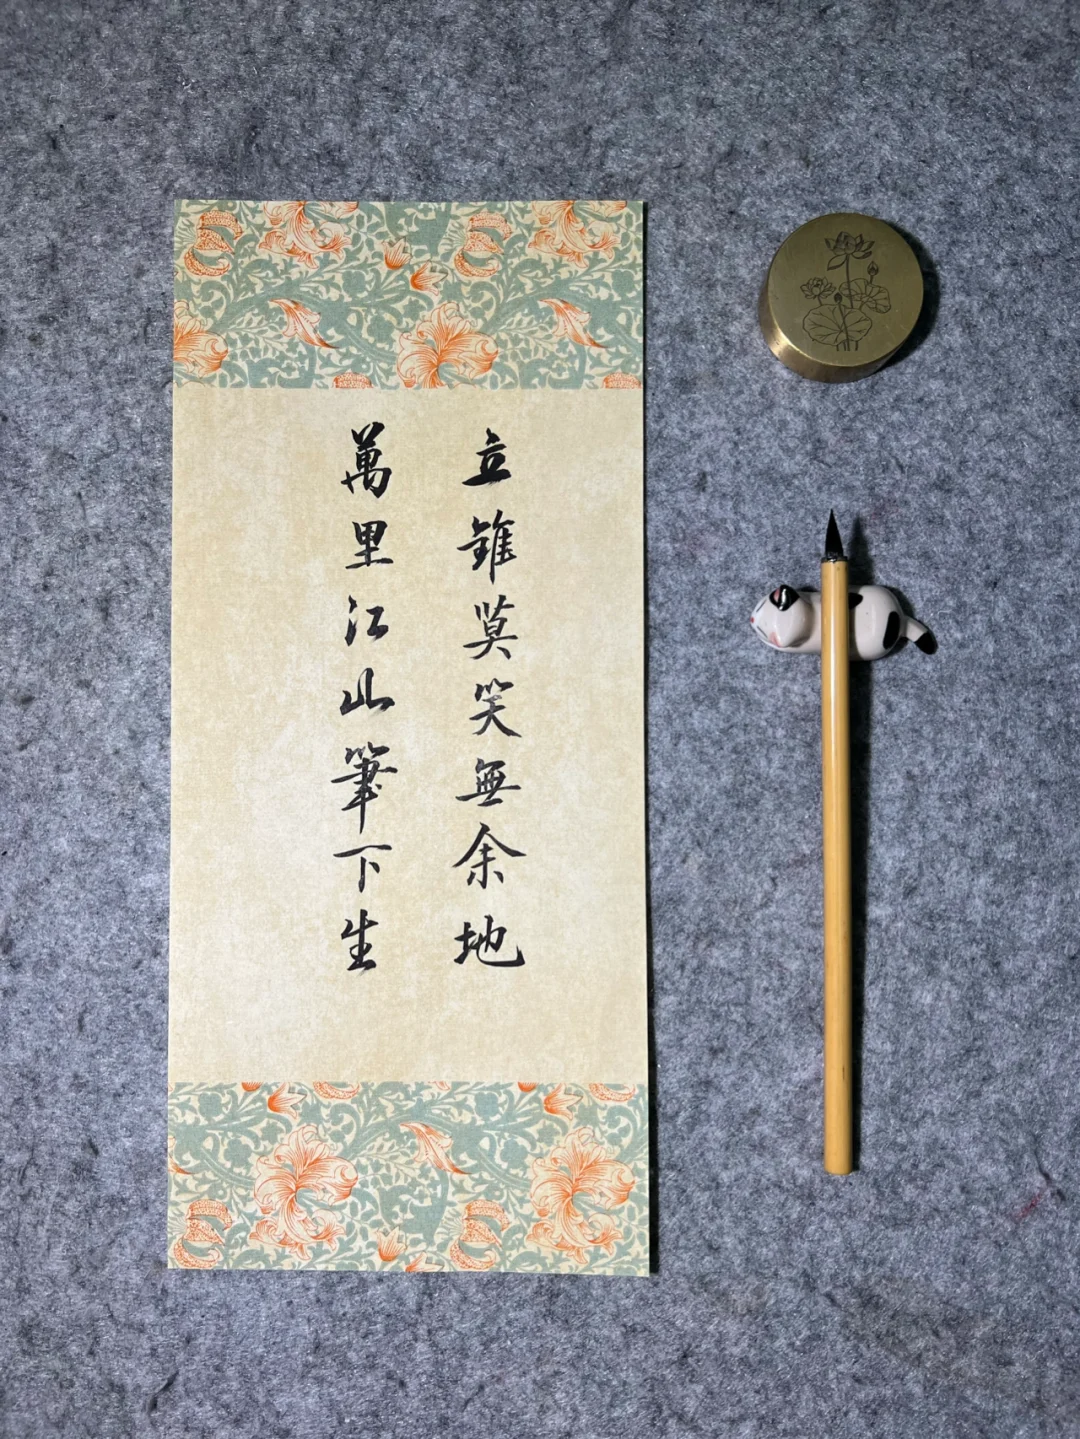 立錐莫笑無余地
萬里江山筆下生